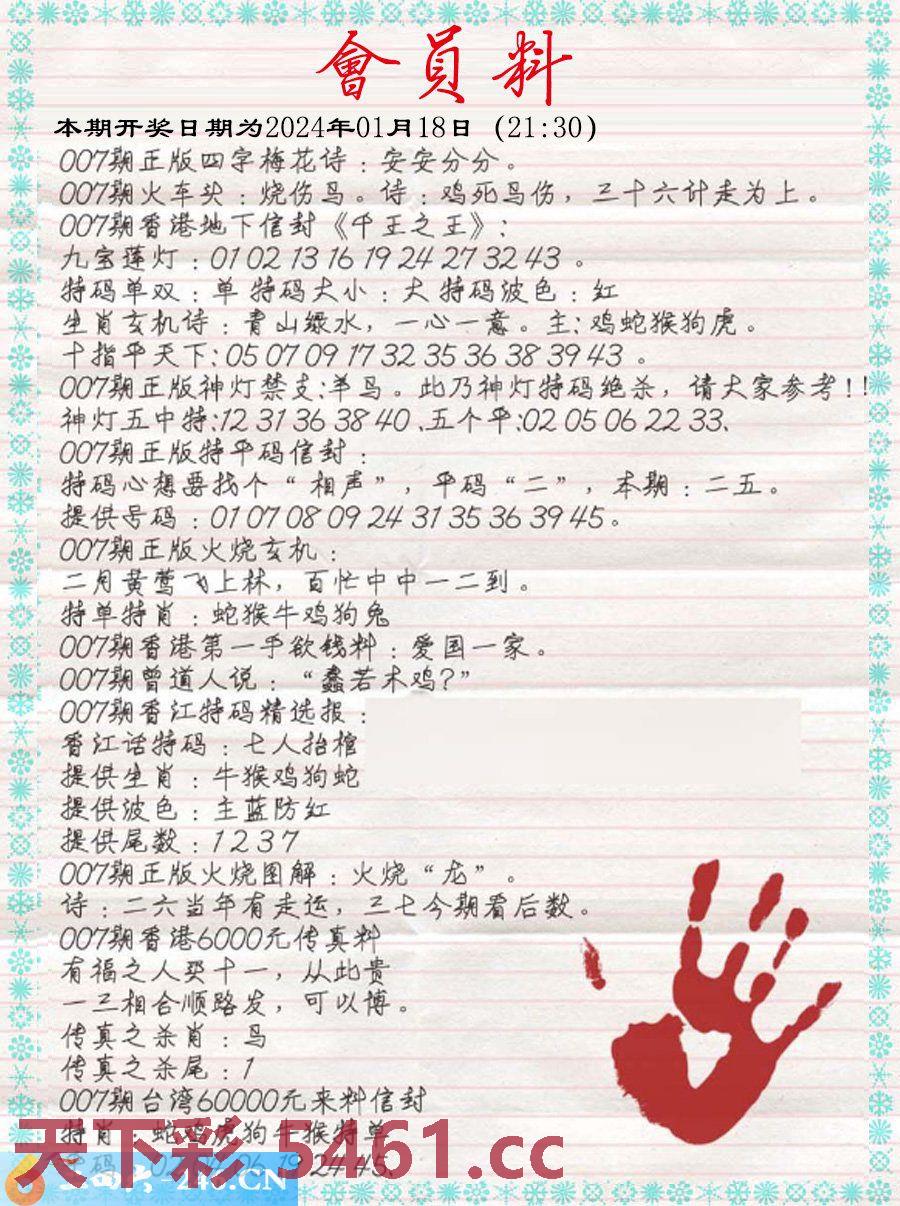 會員料
本期开奖日期为2024年01月18日 (21:30)
007期正版四字梅花诗：安安分分。
007期火车头：烧伤鸟。诗：鸡死鸟伤，三十六计走为上。
007期香港地下信封《千王之王》：
九宝莲灯：01 02 13 16 19 24 27 32 43 。
特码单双：单 特码大小：大 特码波色：红
生肖玄机诗：青山绿水，一心一意。主：鸡蛇猴狗虎。
十指平天下：05 07 09 17 32 35 36 38 39 43 。
007期正版神灯禁支：羊鸟。此乃神灯特码绝杀，请大家参考！！
神灯五中特：12 31 36 38 40 、五个平：02 05 06 22 33、
007期正版特平码信封：
特码心想要找个“相声”，平码“二”，本期：二五。
提供号码：01 07 08 09 24 31 35 36 39 45。
007期正版火烧玄机：
二月黄莺飞上林，百忙中中一二到。
特单特肖：蛇猴牛鸡狗兔
007期香港第一手欲钱料：爱国一家。
007期曾道人说：“蠢若木鸡？”
007期香江特码精选报：
香江话特码：七人抬棺
提供生肖：牛猴鸡狗蛇
提供波色：主蓝防红
提供尾数：1 2 3 7
007期正版火烧图解：火烧“龙”。
诗：二六当年有走运，三七今期看后数。
007期香港6000元传真料
有福之人买十一，从此贵
一三相合顺路发，可以博。
传真之杀肖：鸟
传真之杀尾：1
007期台湾60000元来料信封
特肖：蛇鸡虎狗牛猴特单
天下彩 5461.cc
码 06 19 24 45、
-246.CN